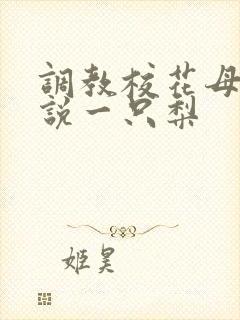 調教校花母
說一只梨
姬昊